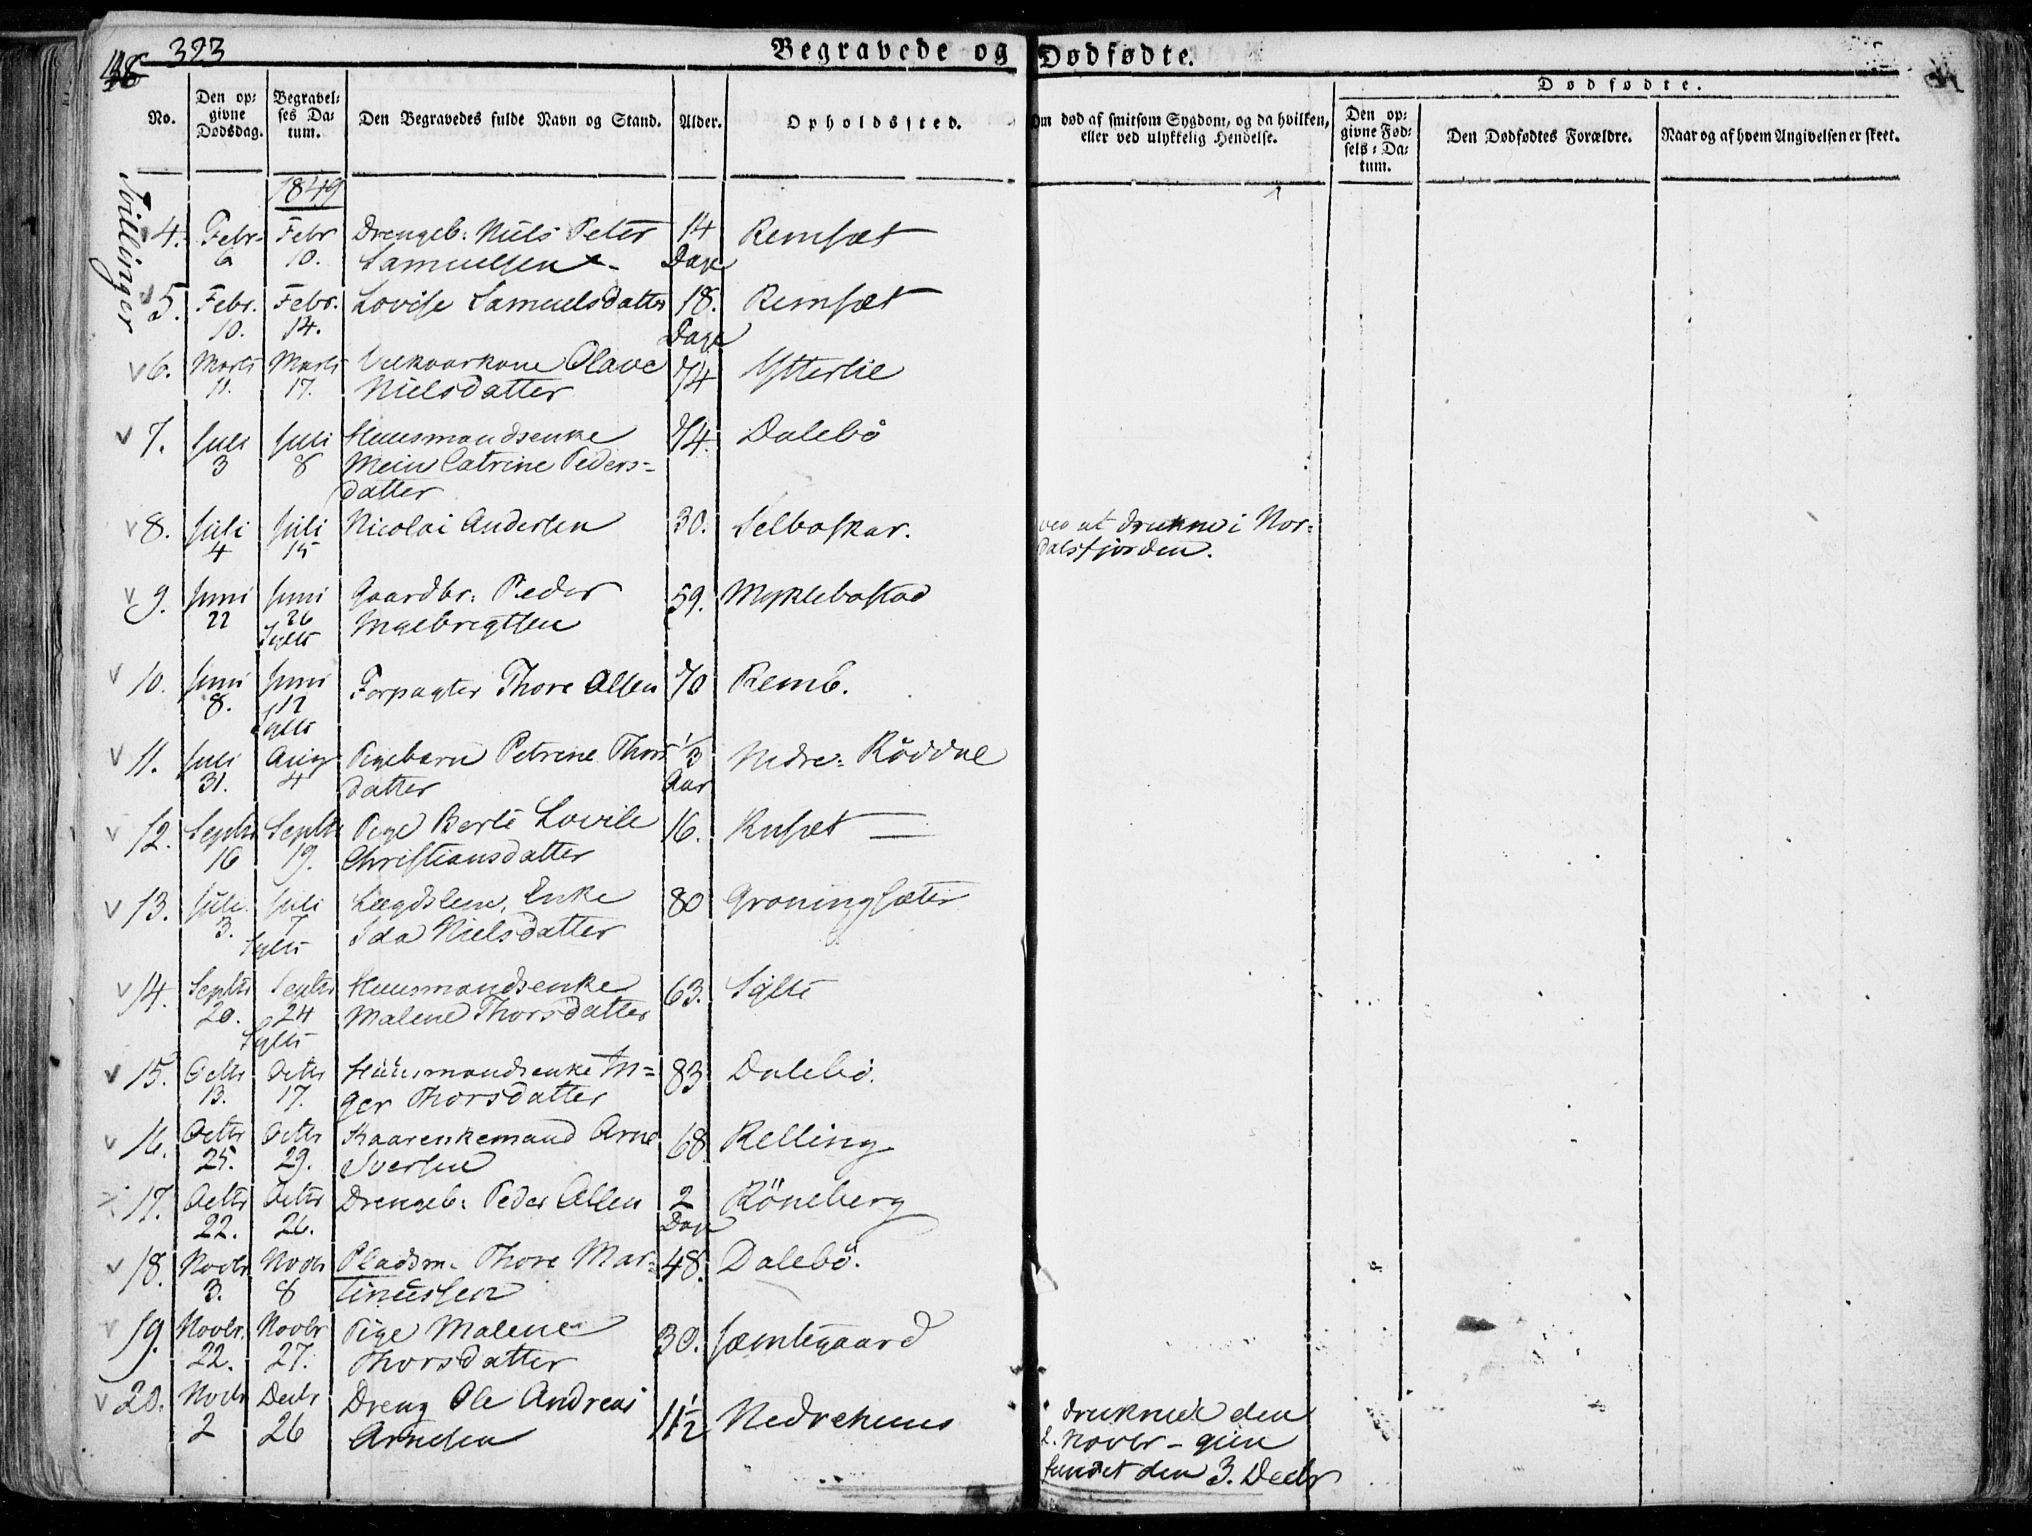 323
Begravede og Dødfødte.
No.
Den op=
givne
Dødsdag.
Begravel=
ses Da=
tum.
Den Begravedes fulde Navn og Stand.
Alder.
Opholdssted.
Om død af smitsom Sygdom, og da hvilken,
eller ved ulykkelig Hendelse.
Dødfødte.
Den op=
givne Fød=
sels=Da=
tum.
Den Dødfødtes Forældre.
Naar og af hvem Angivelsen er skeet.
Tvillinger
1849
4. Febr. Febr Drengeb: Niels Peter 14 Remsæt
6 10. Samuelsen Dage
5. Febr. Febr. Lovise Samuelsdatter 18. Remsæt
10. 14. Dage
6. Marts Marts Velkaarkone Olave 74 Ytterlie
11. 17. Nielsdatter
7. Juli Juli Huusmandsenke 74. Dalebø
3 8 Catrine Peders=
datter
8. Juli Juli Nicolai Andersen 30. Selboskar. ved at drukne i Nor=
4 15 dalsfjorden.
9. Juni Juni Gaardbr: Peder 59. Myklebostad
22 26 Ingebrigtsen
Sylte
10. Juni Juni Forpagter Thore Olsen 70 Remb.
8. 12
Sylte
11. Juli Aug Pigebarn Petrine Thors 1/3 Nedre= Røddal
31. 4 datter Aar
12. Septbr Septbr Pige Berte Lovise 16. Rusæt
16 19. Christiansdatter
13. Juli Juli Lægdslem, Enke 80 Groningsæter
3. 7 Ida Nielsdatter
Sylte
14. Septbr Septbr Huusmandsenke 63. Sylte
20. 24 Malene Thorsdatter
Sylte
15. Octbr Octbr Huusmandsenke In= 83 Dalebø.
13. 17. ger Thorsdatter
16. Octbr Octbr Kaarenkemand Arne 68 Relling
25. 29. Iversen
17. Octbr Octbr Drengeb: Peder Olsen 2 Røneberg
22. 26. Dage
18. Novbr Novbr Pladsm. Thore Mar= 48. Dalebø.
3. 8 tinussen
19. Novbr. Novbr Pige Malene 30. Jæmtegaard
22. 27. Thorsdatter
20. Novbr Decbr Dreng Ole Andreas 11 1/2 Nedrehuus druknede den
2 26 Arnesen 2. Novbr - gien
fundet den 3. Decbr